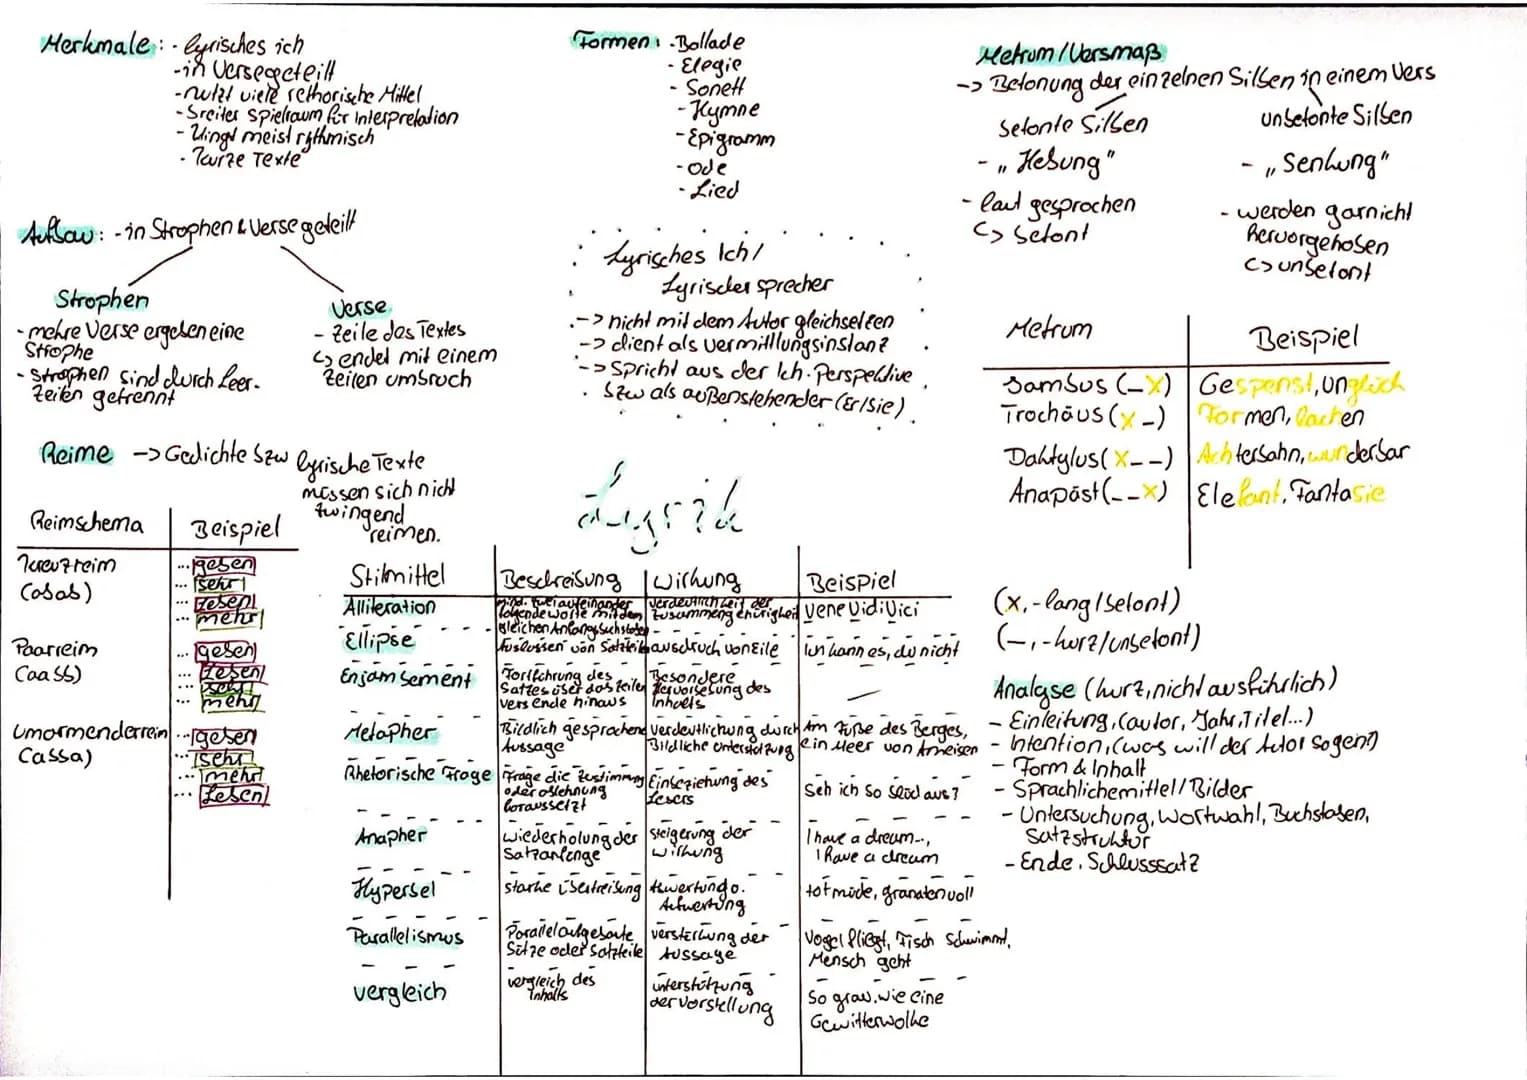 Merkmale: - lyrisches ich
- in Verse geteilt
- nutzt viele rethorische Mittel
- breiter Spielraum für Interpretation
- klingt meist rythmisch
- kurze Texte
Aufbau: - in Strophen & Verse geteilt
Strophen
- mehre Verse ergeben eine
Strophe
- Strophen sind durch Leer-
zeilen getrennt
Verse
- Zeile des Textes
↳ endet mit einem
Zeilen umbruch
Reime -> Gedichte bzw lyrische Texte
müssen sich nicht
zwingend
reimen.
Reimschema Beispiel
Kreuzreim
(abab)
... geben
... sehr
... Leben
... mehr
Paarreim
(aabb)
... geben
... Leben
... sehr
... mehr
umarmenderreim
(abba)
... geben
... sehr
... mehr
... Leben
Formen: - Ballade
- Elegie
- Sonett
- Hymne
- Epigramm
- Ode
- Lied
Lyrisches Ich /
Lyrischer sprecher
-> nicht mit dem Autor gleichsetzen
-> dient als vermittlungsinstanz
-> Spricht aus der Ich-Perspektive
bzw als außenstehender (Er/sie)
Lyrik
Stilmittel Beschreibung Wirkung Beispiel
Alliteration
mind. zwei aufeinander
folgende worte mit dem
gleichen Anfangsbuchstaben
verdeutlicht der
Zusammengehörigkeit
Veni Vidi Vici
Ellipse Auslassen von Satzteilen ausdruck von Eile Ich kann es, du nicht
Enjambement
Fortführung des
Satzes über das Zeilen
vers ende hinaus
Besondere
Hervorhebung des
Inhalts
Metapher
Bildlich gesprochene
Aussage
Verdeutlichung durch
Bildliche unterstützung
Am Fuße des Berges,
ein Meer von Ameisen
Rhetorische Frage
Frage die Zustimmung
oder ablehnung
voraussetzt
Einbeziehung des
Lesers
Seh ich so blöd aus?
Anapher
Wiederholung der
Satzanfänge
Steigerung der
Wirkung
I have a dream...,
I have a dream
Hyperbel
starke Übertreibung
Abwertung o.
Aufwertung
totmüde, granatenvoll
Parallelismus
Parallel aufgebaute
Sätze oder Satzteile
verstärkung der
Aussage
Vogel fliegt, Fisch schwimmt,
Mensch geht
vergleich
vergleich des
Inhalts
unterstützung
der vorstellung
So grau, wie eine
Gewitterwolke
Metrum/Versmaß
-> Betonung der einzelnen Silben in einem Vers
betonte Silben
- „Hebung"
- laut gesprochen
↳ betont
unbetonte Silben
- „Senkung"
- werden garnicht
hervorgehoben
↳ unbetont
Metrum Beispiel
Jambus (_x) Gespenst, unglück
Trochäus (x_) Formen, lachen
Daktylus (x__) Achterbahn, wunderbar
Anapäst (__x) Elefant, Fantasie
(x, - lang/betont)
(_, - kurz/unbetont)
Analyse (kurz, nicht ausführlich)
- Einleitung, (autor, Jahr, Titel...)
- Intention, (was will der Autor sagen?)
- Form & Inhalt
- Sprachlichemittel/Bilder
- Untersuchung, Wortwahl, Buchstaben,
Satzstruktur
- Ende, Schlusssatz